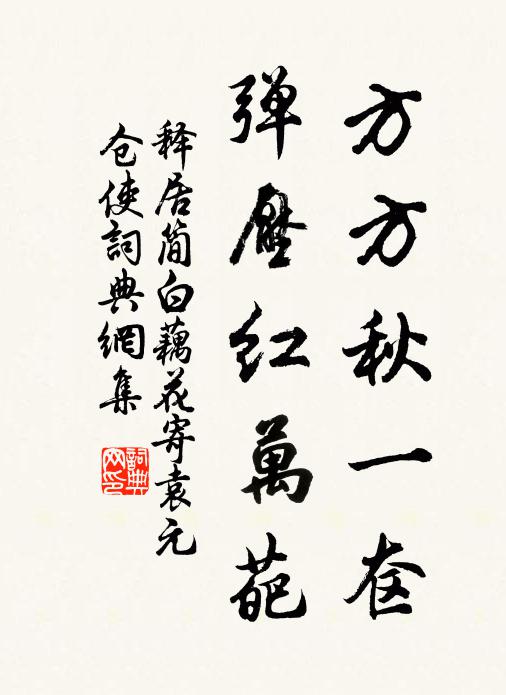 方方秋一奁
弹压红万葩
释居简白藕花寄袁元
仓使詞典網集
詞典网印